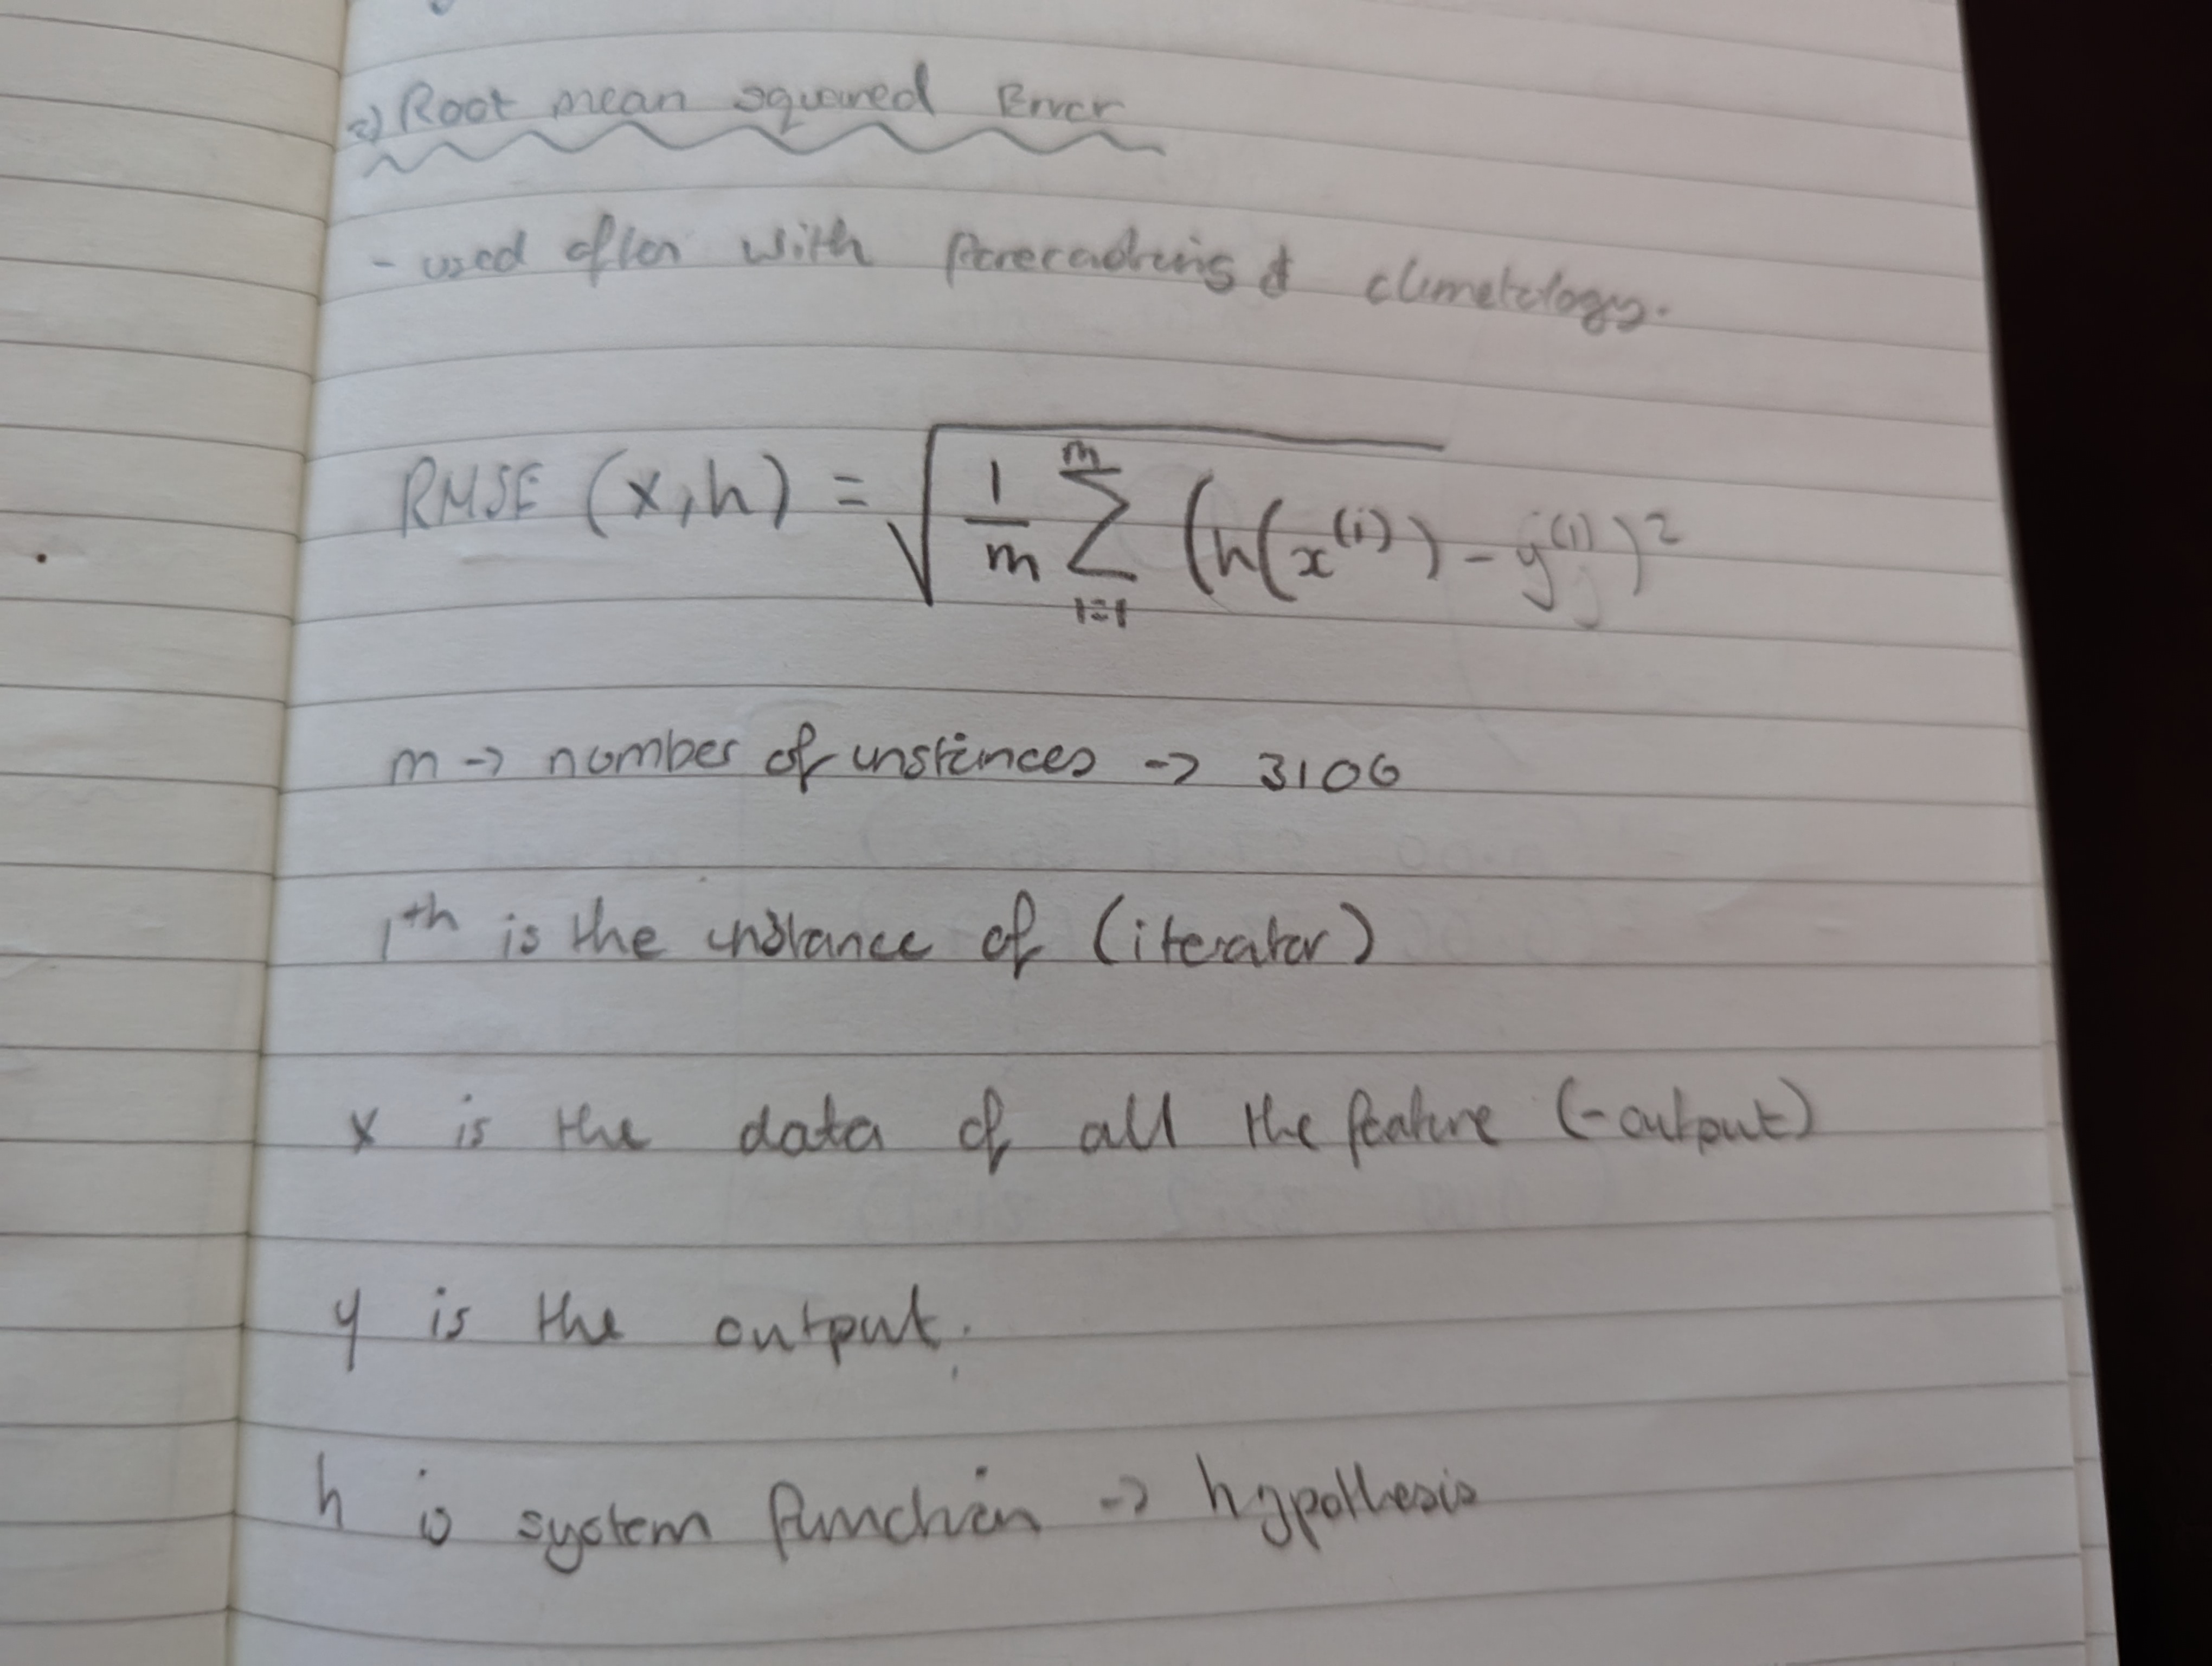 2) Root mean squared Error
- used often with forecasting & climetology.
RMSE (x,h) = √ 1/m m Σ i=1 (h(x^(i)) - y^(i))^2
m -> number of instances -> 3106
i^th is the instance of (iterator)
x is the data of all the feature (-output)
y is the output.
h is system function -> hypothesis